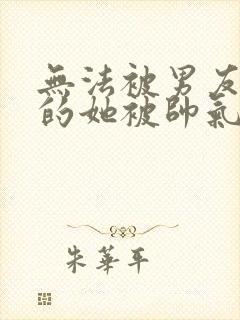 無法被男友
的她被帥氣
朱華平